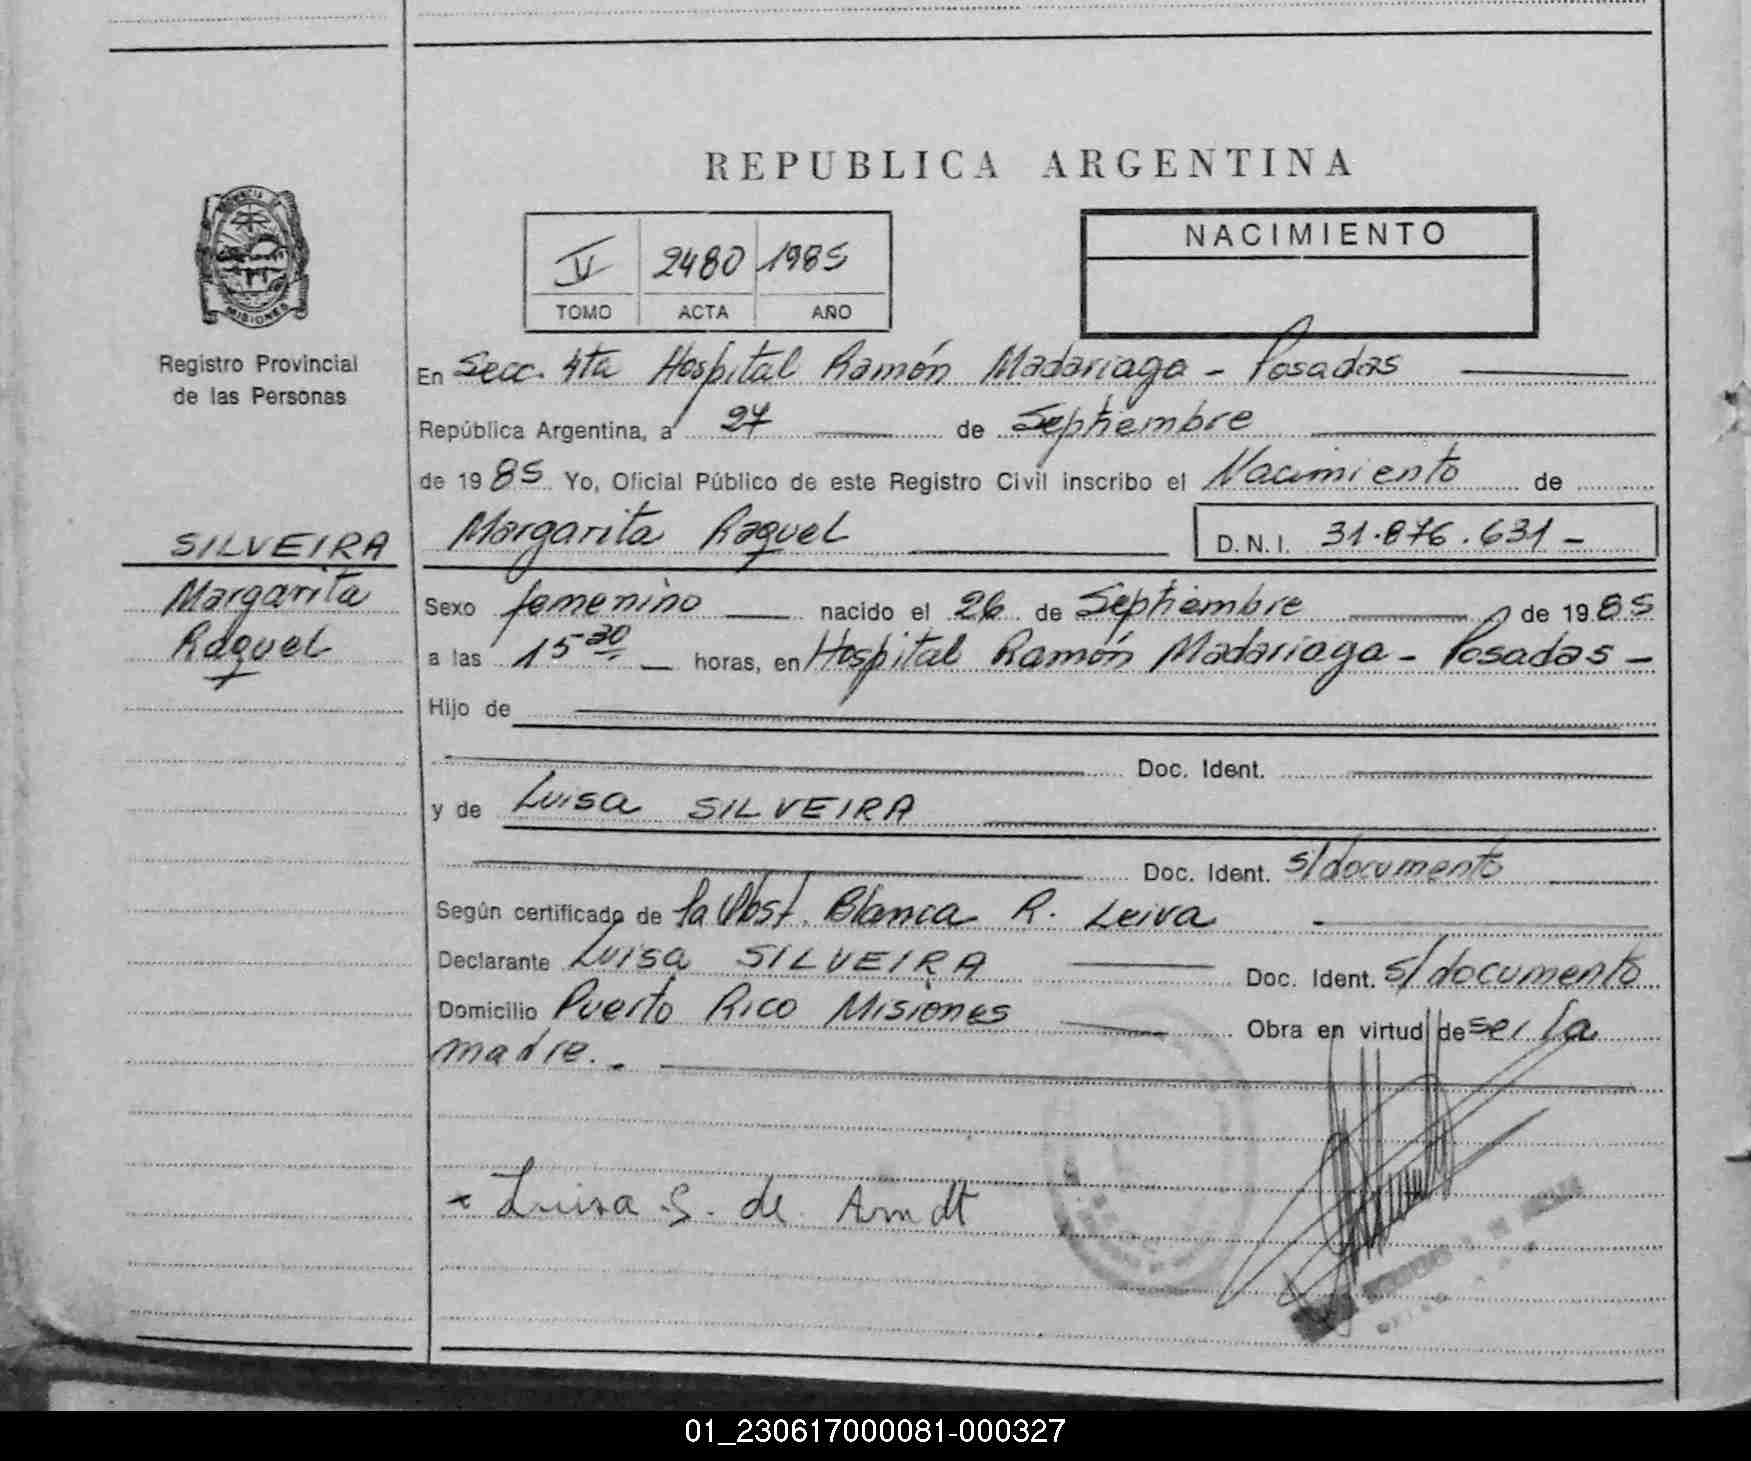 REPUBLICA ARGENTINA
PROVINCIA DE
MISIONES
Registro Provincial
de las Personas
V 2480 1985
TOMO ACTA AÑO
NACIMIENTO
En Secc. 4ta Hospital Ramón Madariaga - Posadas
República Argentina, a 27 de Septiembre
de 1985 Yo, Oficial Público de este Registro Civil inscribo el Nacimiento de
Margarita Raquel D.N.I. 31.876.631 -
SILVEIRA
Margarita
Raquel
Sexo femenino nacido el 26 de Septiembre de 1985
a las 15 30 horas, en Hospital Ramón Madariaga - Posadas -
Hijo de
Doc. Ident.
y de Luisa SILVEIRA
Doc. Ident. s/documento
Según certificado de la Obst. Blanca R. Leiva
Declarante Luisa SILVEIRA Doc. Ident. s/documento
Domicilio Puerto Rico Misiones Obra en virtud de ser la
madre. -
Luisa S. de Arndt
01_230617000081-000327